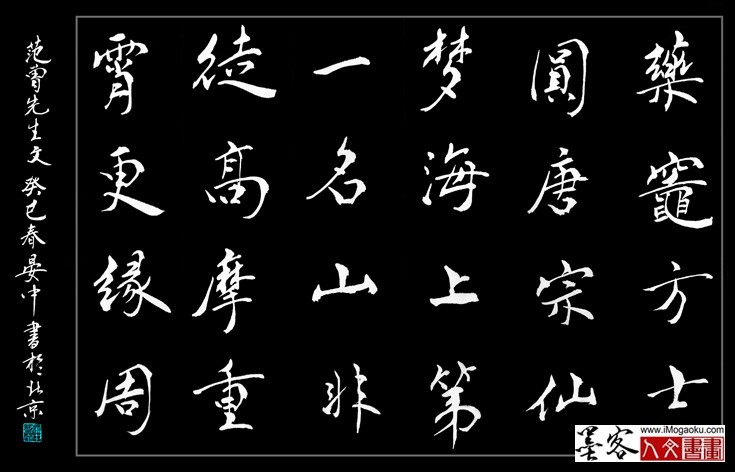 藥竈方士
圓唐宗仙
梦海上第
一名山非
徒高摩重
霄更緣周
范曾先生文癸巳春晏中書於北京
www.iMogaoku.com
墨客人文書畫